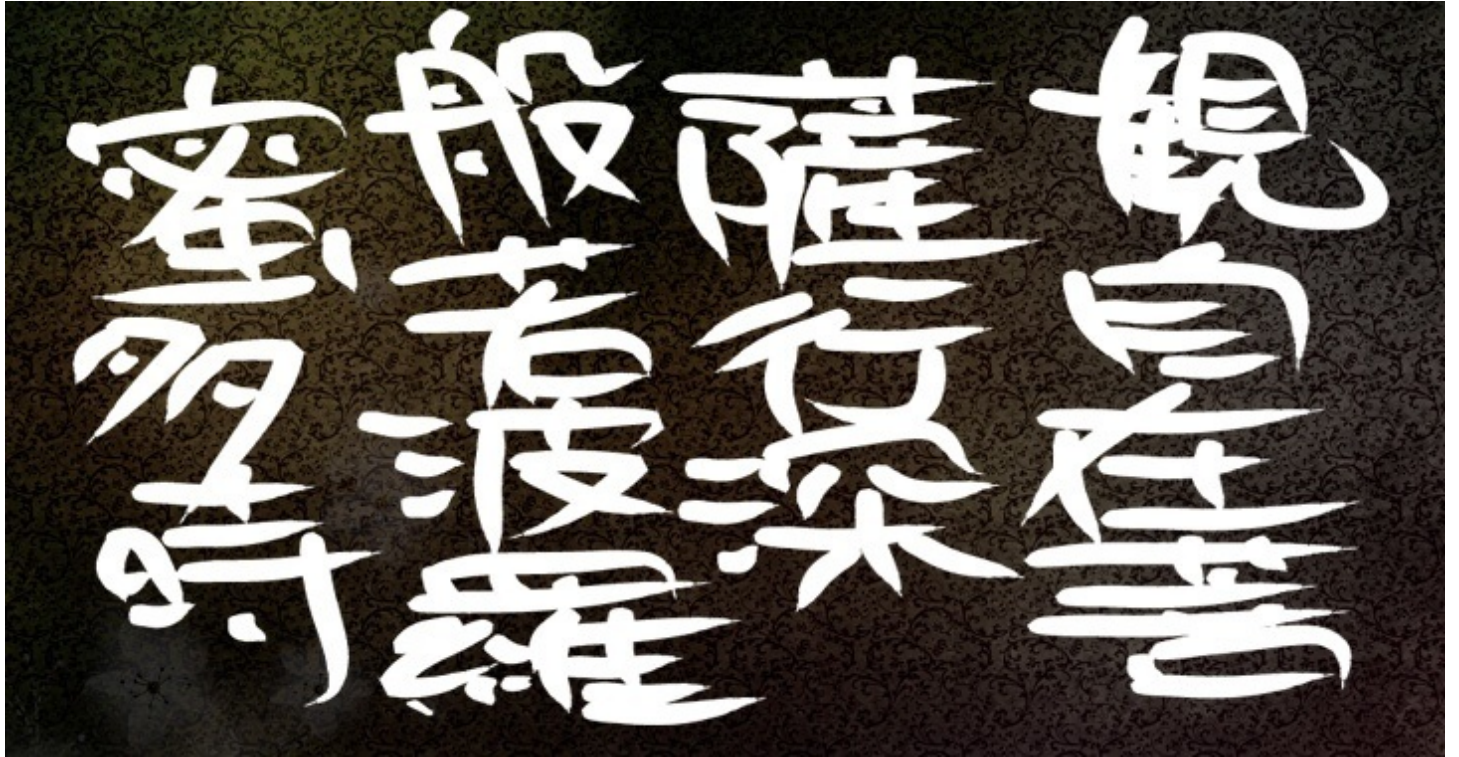 観自在菩
薩行深
般若波羅
蜜多時